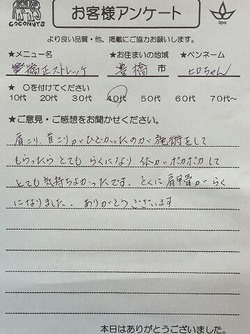 COCONUTS
お客様アンケート
spa
より良い品質・他、掲載にご協力お願いします。
★メニュー名 ★お住まいの地域 ★ペンネーム
矯正ストレッチ 豊橋 市 ヒロちゃん
★ ○を付けてください
10代 20代 30代 40代 50代 60代 70代〜
★ご意見・ご感想をお聞かせください。
肩こり、首こりがひどかったのが施術をして
もらったらとてもらくになり 体がポカポカして
とても気持ちよかったです。とくに肩甲骨がらく
になりました。ありがとうございます
本日はありがとうございました。